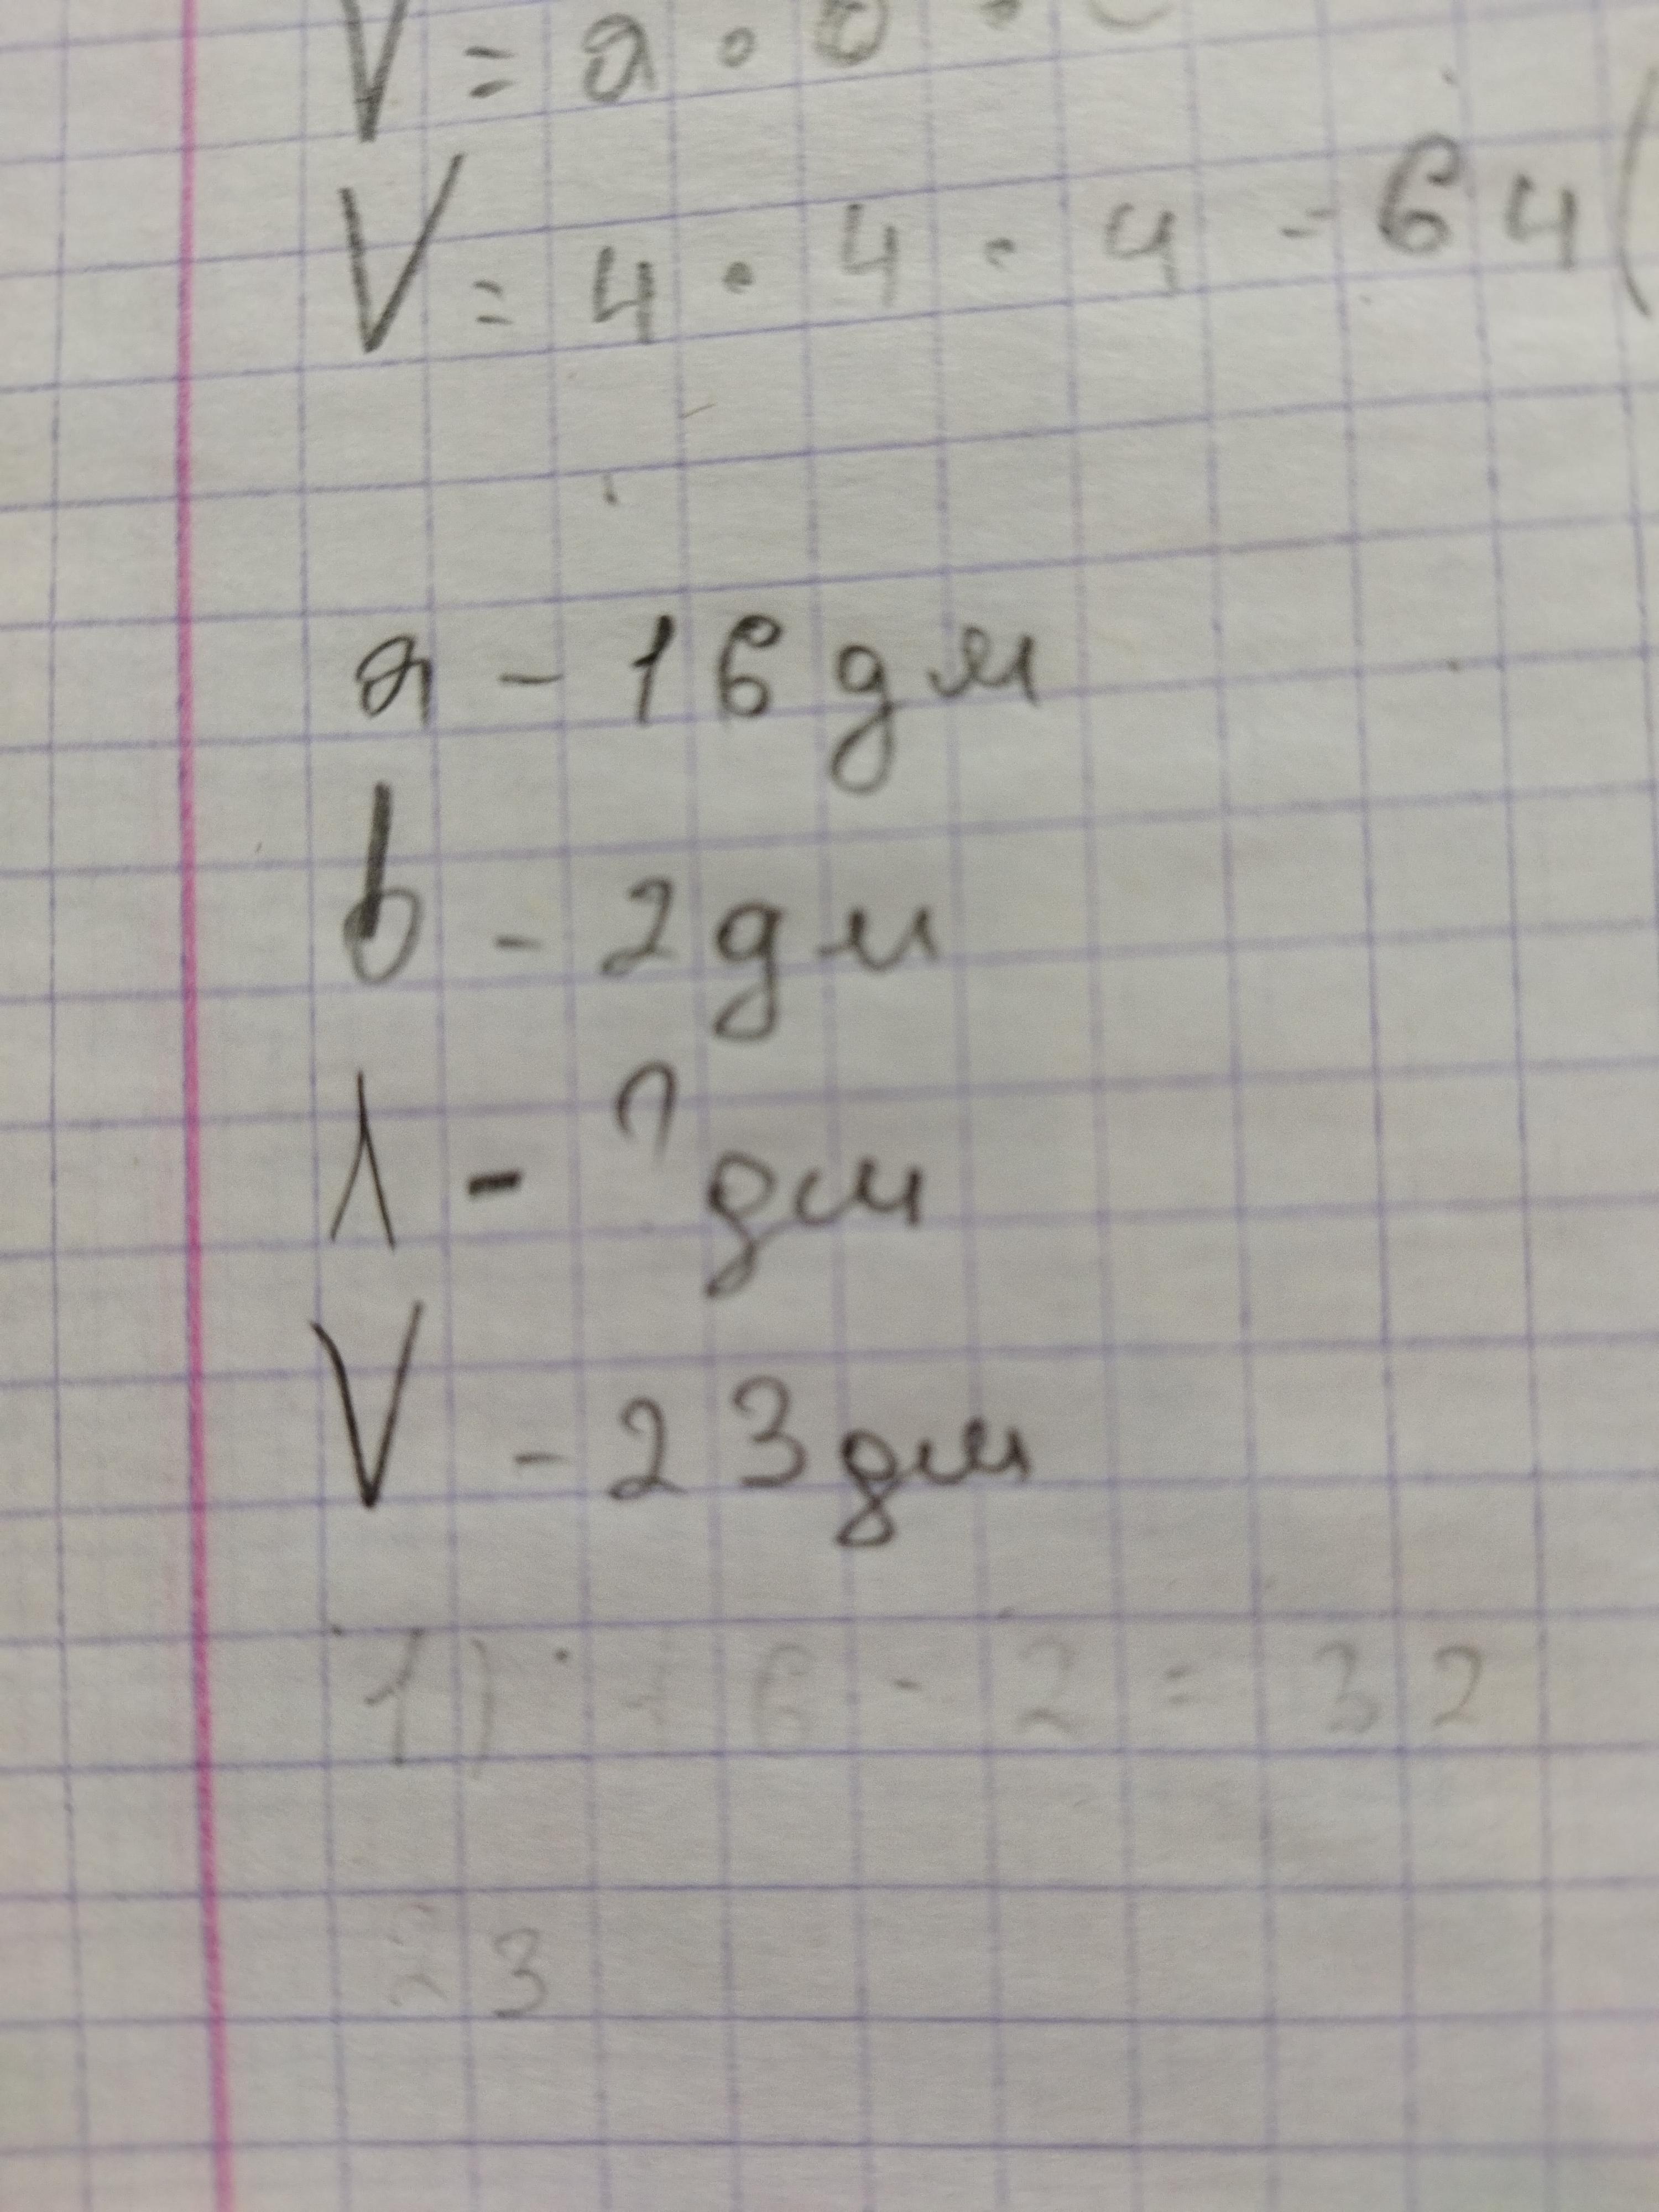 V = a · b ·
V = 4 · 4 · 4 = 64 (
a - 16 дм
b - 2 дм
λ - ? дм
V - 23 дм
1) 16 · 2 = 32
23